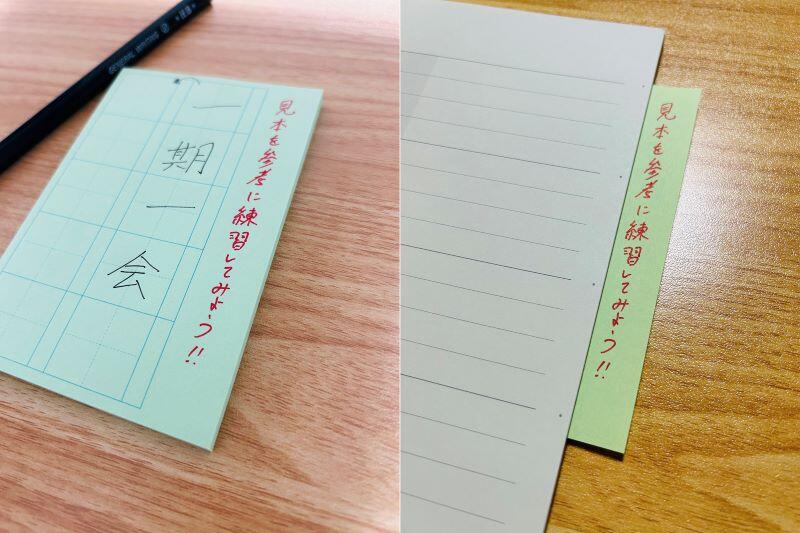 見本を参考に練習してみよう!!
一期一会
GENERAL WRITING
見本を参考に練習してみよう!!